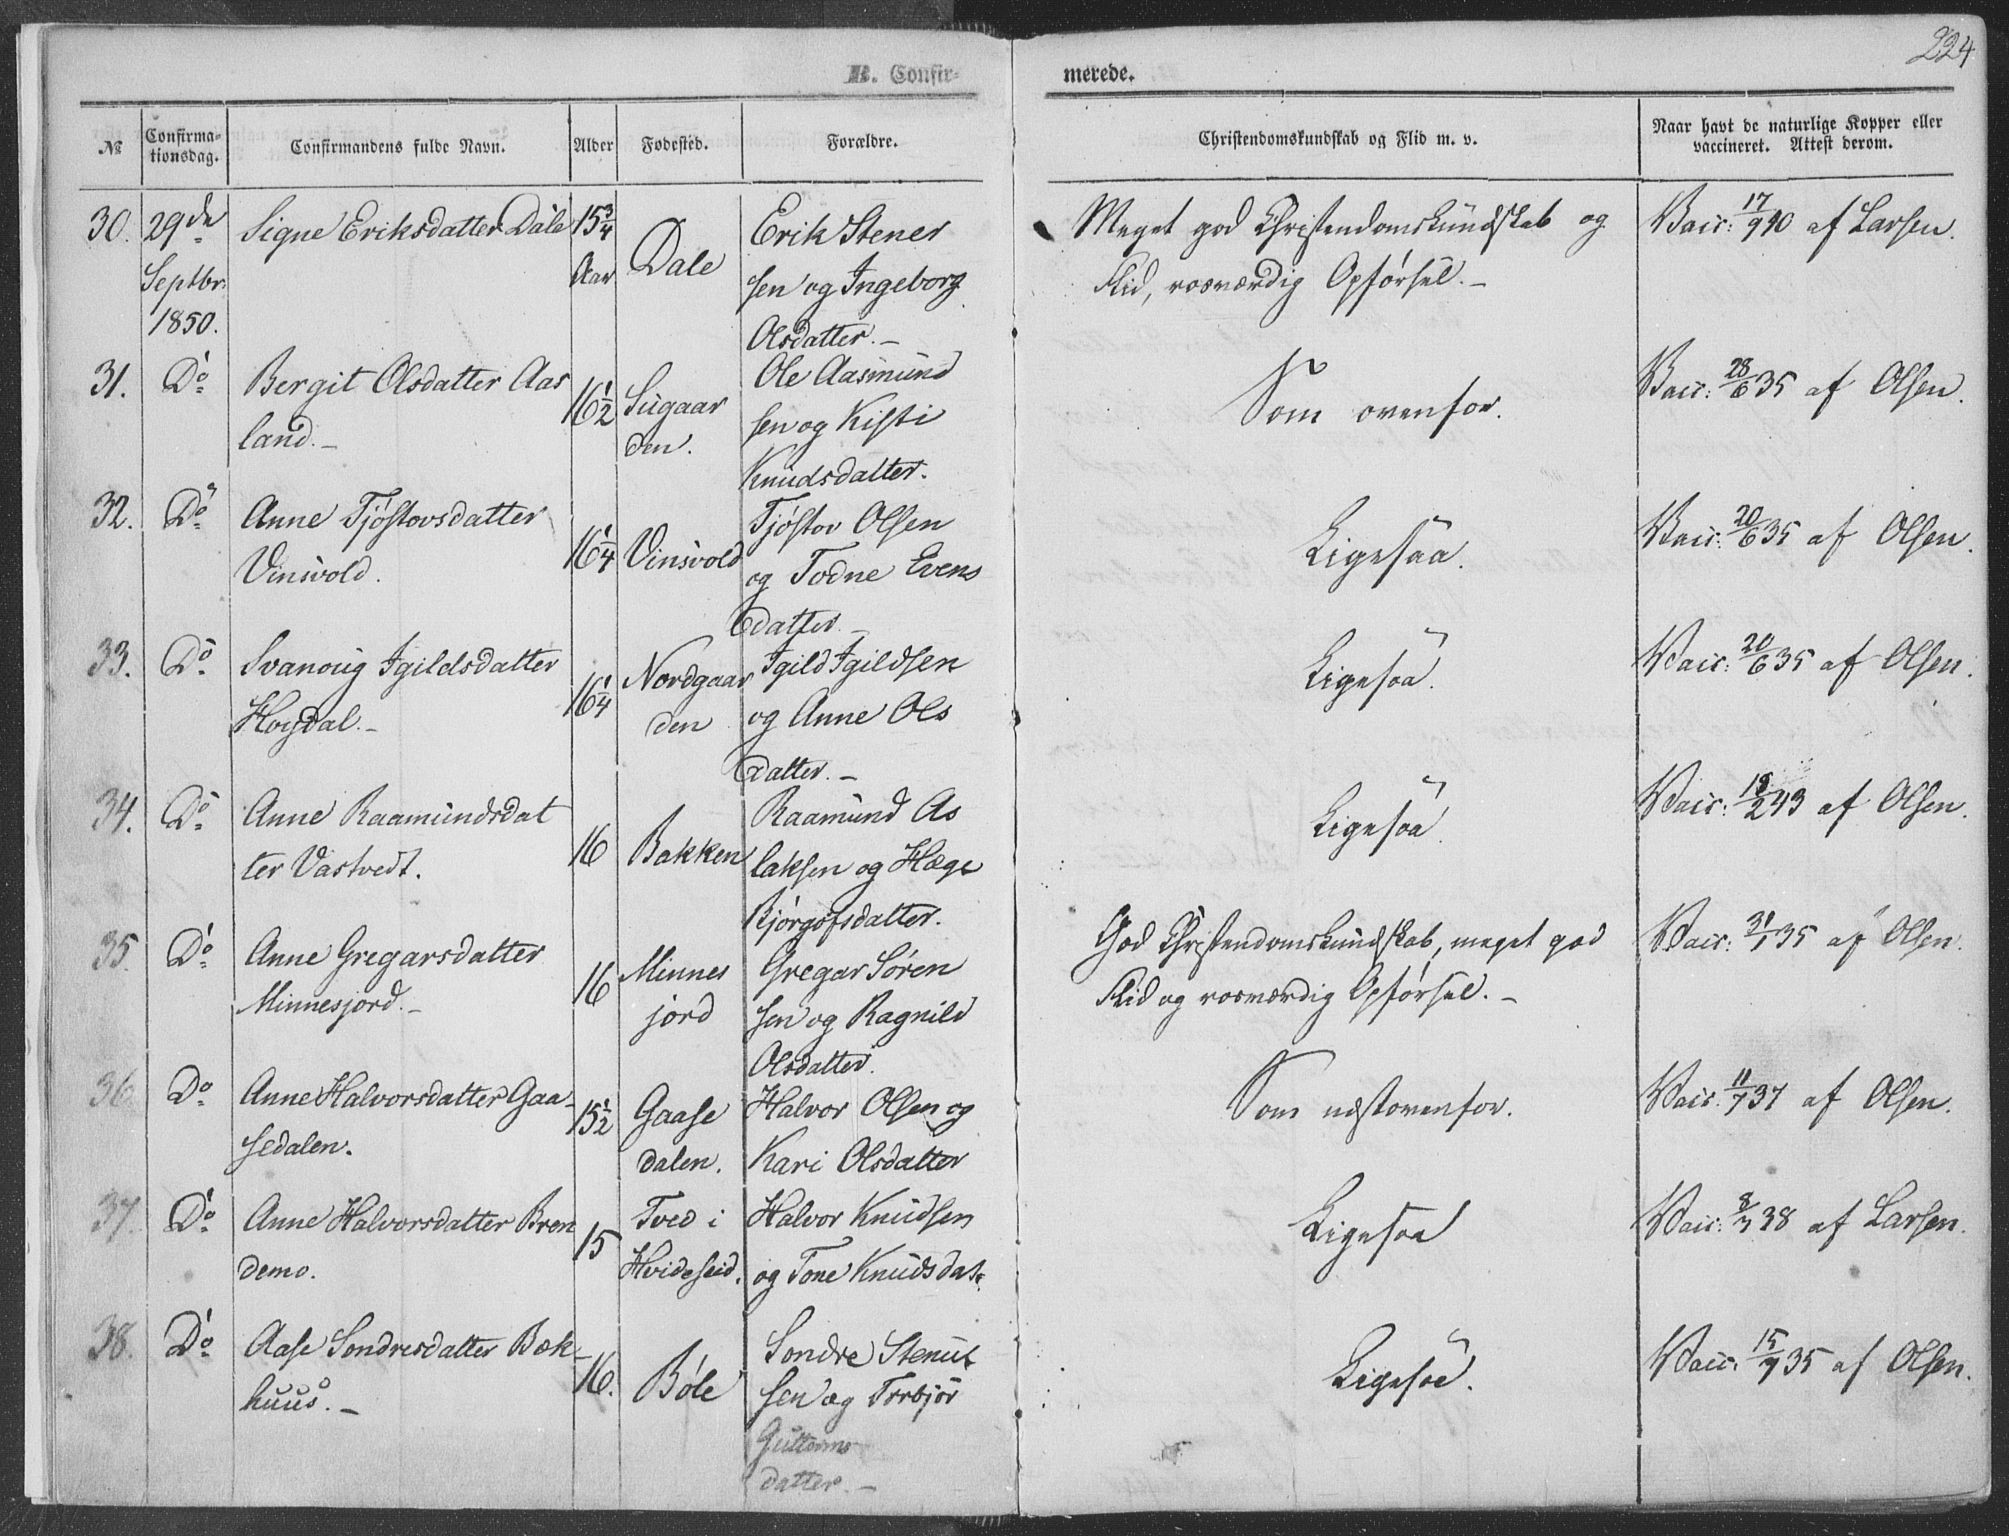 224
B. Confir-
merede.
№
Confirma-
tionsdag.
Confirmandens fulde Navn.
Alder
Fødested.
Forældre.
Christendomskundskab og Flid m. v.
Naar havt de naturlige Kopper eller
vaccineret. Attest derom.
30. 29de Signe Eriksdatter Dale 15 3/4
Septbr.
1850.
Aar
Dale
Erik Stener
sen og Ingeborg
Olsdatter.
Meget god Christendomskundskab og
Flid, rosværdig Opførsel.
Vacc: 17/9 40 af Larsen.
31. Do Bergit Olsdatter Aas
land.
16 1/2
Sugaar
den.
Ole Aasmund
sen og Kisti
Knudsdatter.
Som ovenfor.
Vacc: 28/6 35 af Olsen.
32. Do Anne Tjøstovsdatter
Vinsvold.
16 1/4
Vinsvold
Tjøstov Olsen
og Todne Evens
datter
Ligesaa.
Vacc: 20/6 35 af Olsen.
33. Do Svanoug Igildsdatter
Hogdal.
16 1/4
Nordgaar
den
Igild Igildsen
og Anne Ols
datter.
Ligesaa.
Vacc: 20/6 35 af Olsen.
34. Do Anne Raamundsdat
ter Vastvedt.
16
Bakken
Raamund As
laksen og Hæge
Bjørgofsdatter.
Ligesaa.
Vacc: 19/2 43 af Olsen.
35. Do Anne Gregarsdatter
Minnesjord.
16
Minnes
jord
Gregar Søren
sen og Ragnild
Olsdatter.
God Christendomskundskab, meget god
Flid og rosværdig Opførsel.
Vacc: 31/1 35 af Olsen.
36 Do Anne Halvorsdatter Gaa-
sedalen.
15 1/2
Gaase
dalen.
Halvor Olsen og
Kari Olsdatter
Som næstovenfor.
Vacc. 11/7 37 af Olsen.
37. Do Anne Halvorsdatter Bren
demo.
15
Tved i
Hvideseid.
Halvor Knudsen
og Tone Knudsdat.
Ligesaa
Vacc: 8/7 38 af Larsen.
38. Do Aase Sondresdatter Bæk-
huus.
16.
Bøle
Sondre Stenut
sen og Torbjør
Guttorms
datter.
Ligesaa.
Vacc: 15/7 35 af Olsen.